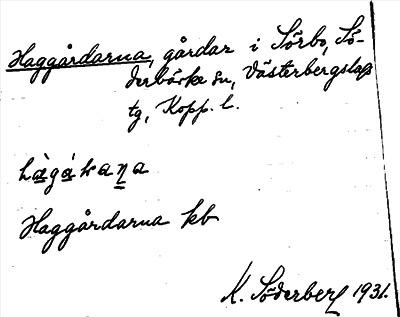 Haggårdarna, gårdar i Sörbo, Sö-
derbärke sn, Västerbergslags
tg, Kopp. l.
Haggårdarna kb
K. Söderberg 1931.